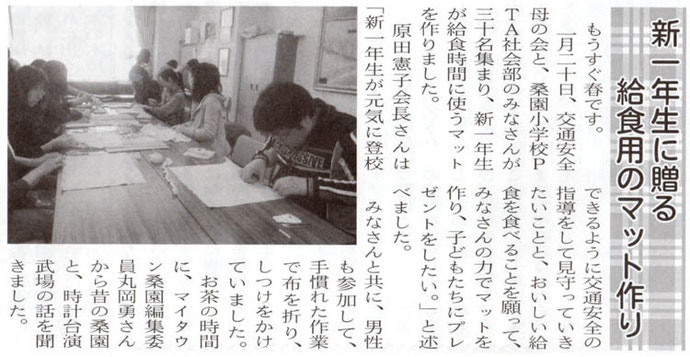 新一年生に贈る
給食用のマット作り
もうすぐ春です。
一月二十日、交通安全
母の会と、桑園小学校P
TA社会部のみなさんが
三十名集まり、新一年生
が給食時間に使うマット
を作りました。
原田憲子会長さんは
「新一年生が元気に登校
できるように交通安全の
指導をして見守っていき
たいことと、おいしい給
食を食べることを願って、
みなさんの力でマットを
作り、子どもたちにプレ
ゼントをしたい。」と述
べました。
みなさんと共に、男性
も参加して、
手慣れた作業
で布を折り、
しつけをかけ
ていました。
お茶の時間
に、マイタウ
ン桑園編集委
員丸岡勇さん
から昔の桑園
と、時計台演
武場の話を聞
きました。